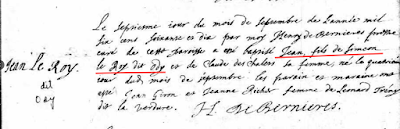 Le septiesme Jour du mois de septembre de l'année mil
six cens soixante et dix par moy Henry de Bernieres prestre
curé de cette paroisse a esté baptisé Jean, fils de Simeon
le Roy dit Ody et de Claude des chalets sa femme, né le quatriesme
Jour dud. mois de septembre les parain et maraine ont
esté Jean Giron et Jeanne Richer femme de Leonard
dit la verdure.
H. de Bernieres
Jean Le Roy
dit
Ody